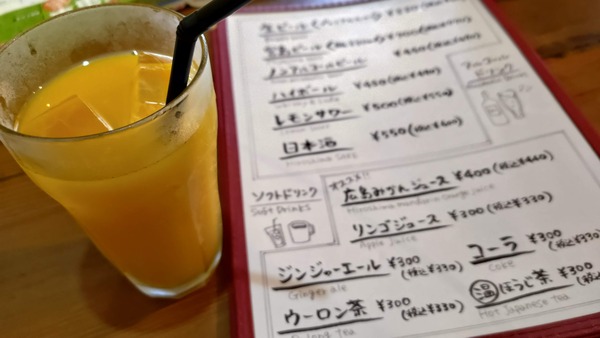 生ビール
ノンアルコールビール
ハイボール ¥450
レモンサワー ¥500(税込¥550)
Lemon Sour
日本酒 ¥550
Hiroshima Sake
アルコール
ドリンク
ソフトドリンク
Soft Drinks
オススメ!!
広島みかんジュース ¥400(税込¥440)
Hiroshima mandarin orange juice
リンゴジュース ¥300(税込¥330)
Apple Juice
ジンジャーエール ¥300
(税込¥330)
Ginger ale
コーラ ¥300
(税込¥330)
Coke
ウーロン茶 ¥300
(税込¥330)
Oolong Tea
温 ほうじ茶 ¥300
(税込¥330)
Hot Japanese Tea